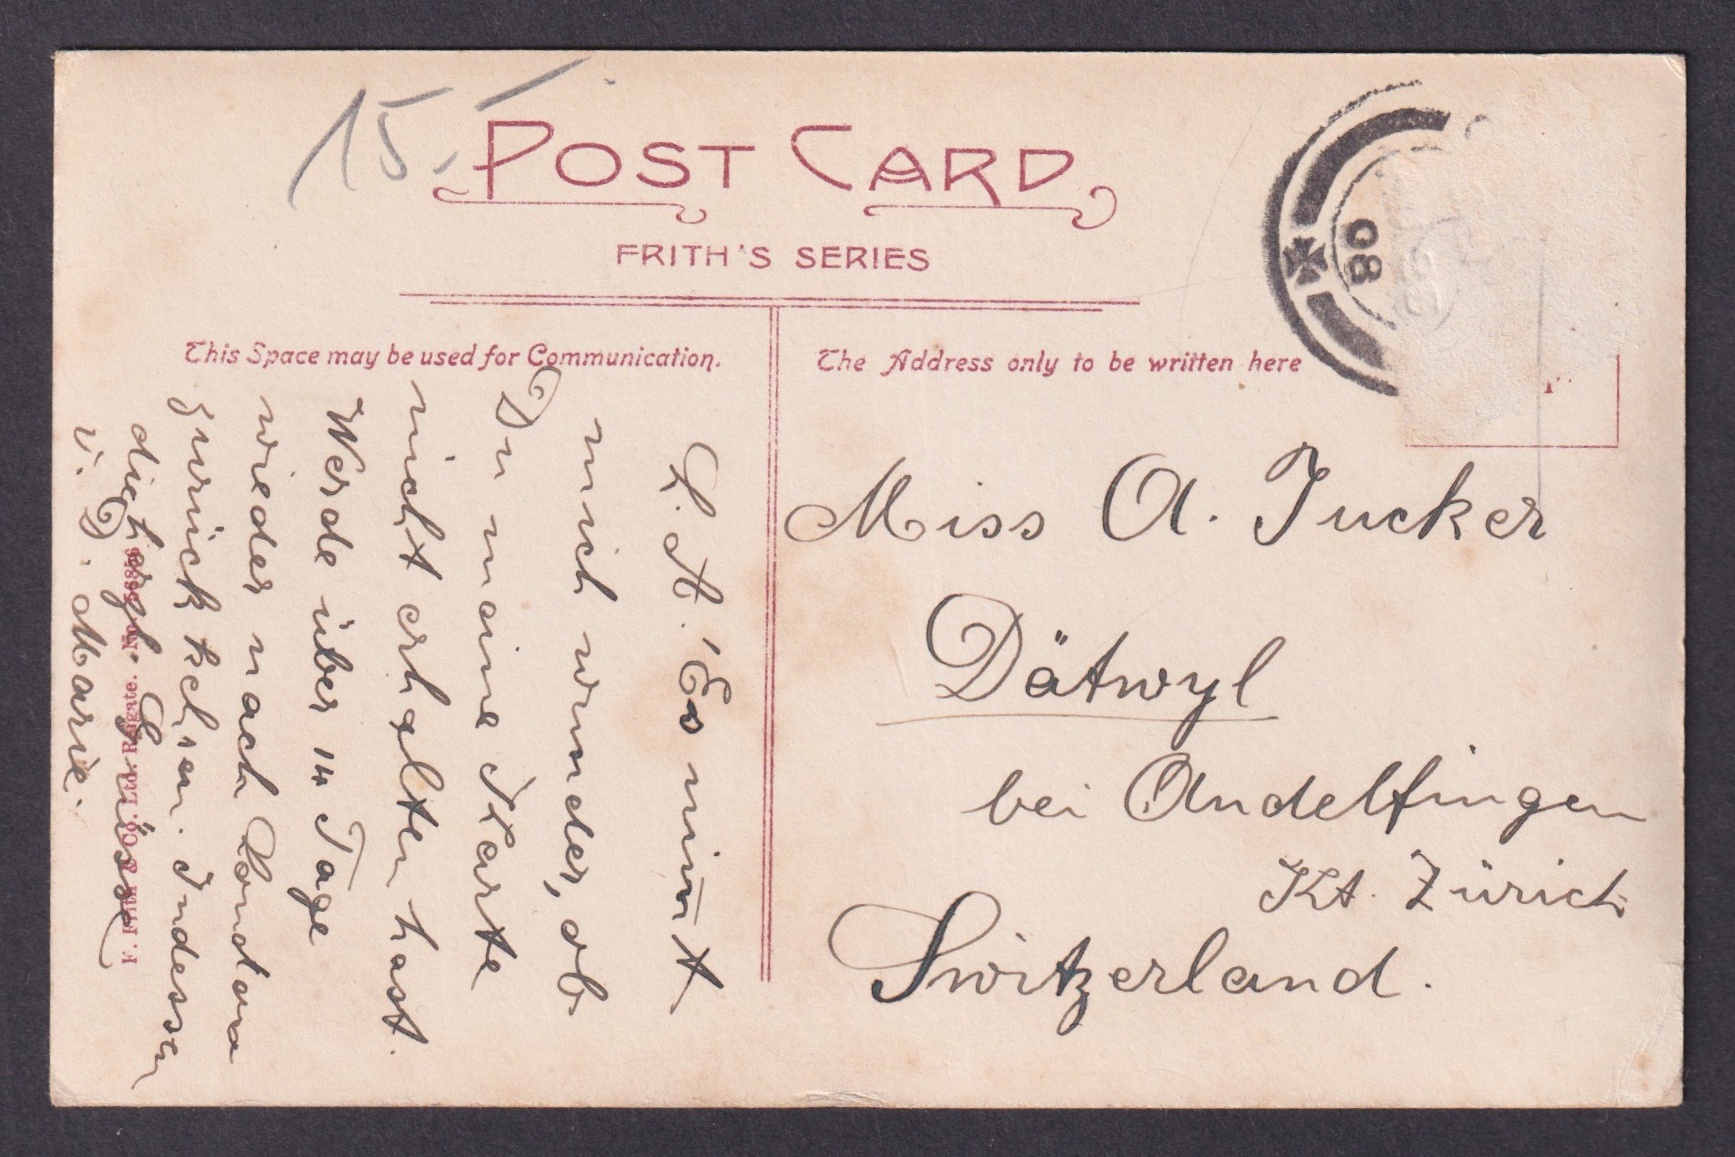 15.-
POST CARD
FRITH'S SERIES
This Space may be used for Communication.
The Address only to be written here
08
L. A. Es nim̄t
mich wunder, ob
Du meine Karte
nicht erhalten hast.
Werde über 14 Tage
wieder nach London
zurück kehren. Indessen
die herzl. Grüsse
v. D. Marie.
F. Frith & Co. Ltd. Reigate. No.
Miss A. Tucker
Dätwyl
bei Andelfingen
Kt. Zürich
Switzerland.